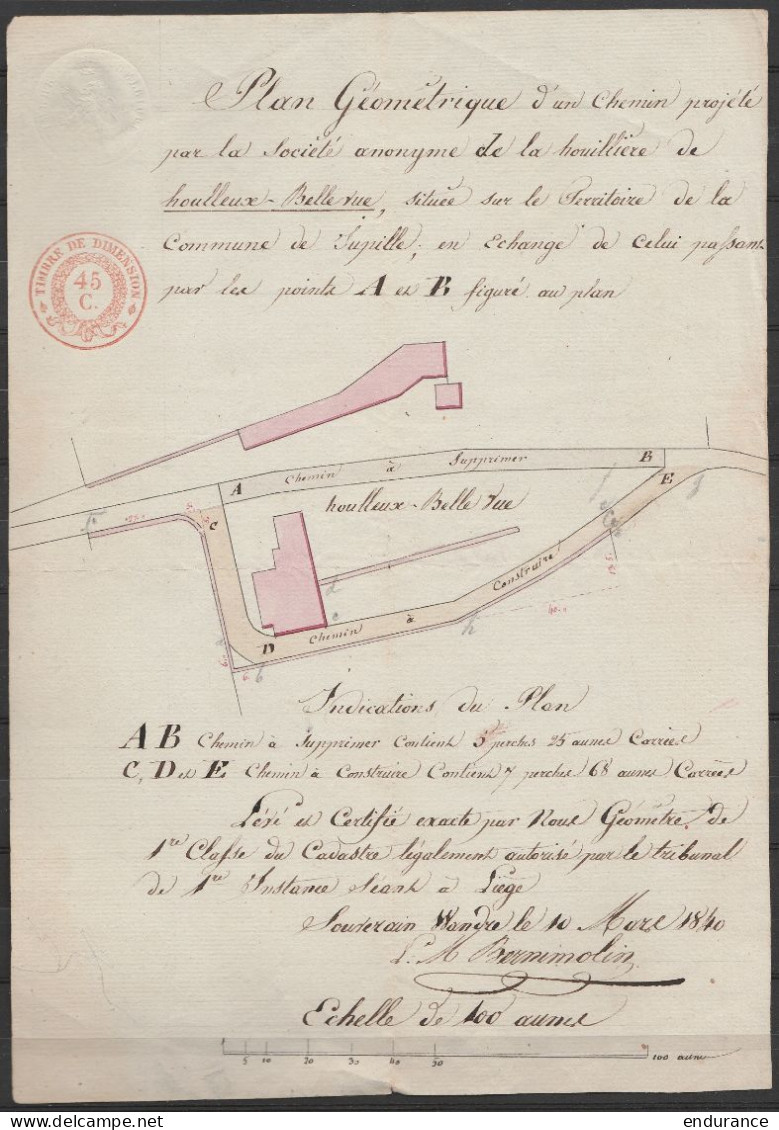 Plan Géométrique d'un Chemin projété
par la Société anonyme de la houillière de
houlleux-Belle vue, située sur le Territoire de la
Commune de Jupille, en Echange de celui passant
par les points A et B figuré au plan
TIMBRE DE DIMENSION
45
C.
A Chemin à Supprimer B
E
C
houlleux-Belle Vue
d
D Chemin à Construire
h
b
g
Indications du Plan
A B Chemin à Supprimer Contient 5 perches 25 aunes Carrées
C, D et E Chemin à Construire Contient 7 perches 68 aunes Carrées
Lévé et Certifié exacte par Nous Géomètre de
1re Classe du Cadastre légalement autorisé par le tribunal
de 1re Instance Séant à Liège
Souverain Wandre le 10 Mars 1840
L. M Bernimolin
Echelle de 100 aunes
5 10 20 30 40 50 100 aunes
endurance